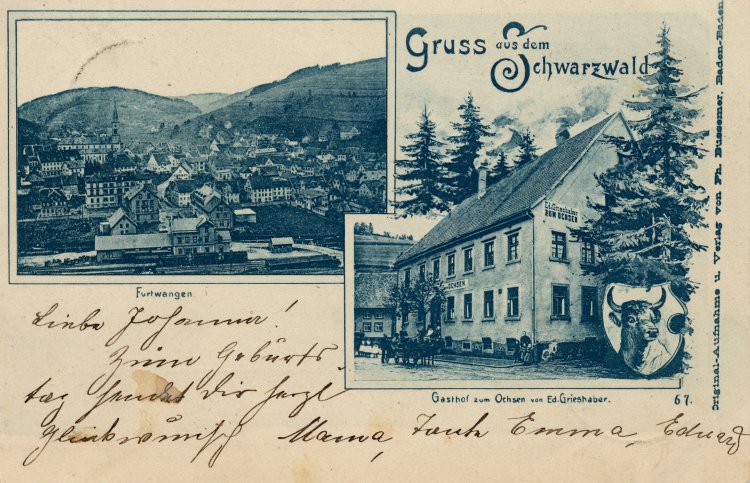 Gruss aus dem
Schwarzwald
Ed. Grieshaber
ZUM OCHSEN
OCHSEN
Furtwangen
Gasthof zum Ochsen von Ed. Grieshaber.
67.
Original-Aufnahme u. Verlag von Ph. Bussemer, Baden-Baden
Liebe Johanna!
Zum Geburts-
tag sendet Dir herzl
Glückwunsch Mama, Tante Emma, Eduard